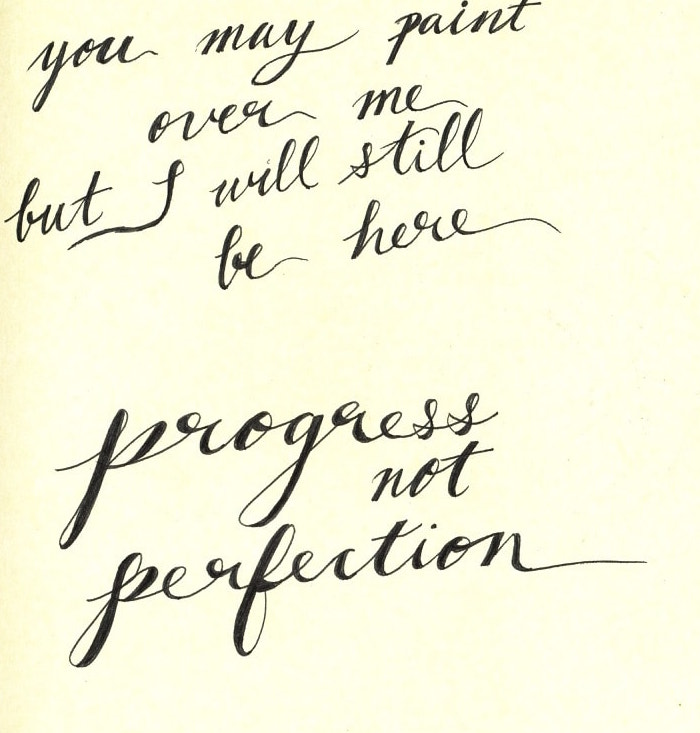 you may paint
over me
but I will still
be here
progress
not
perfection